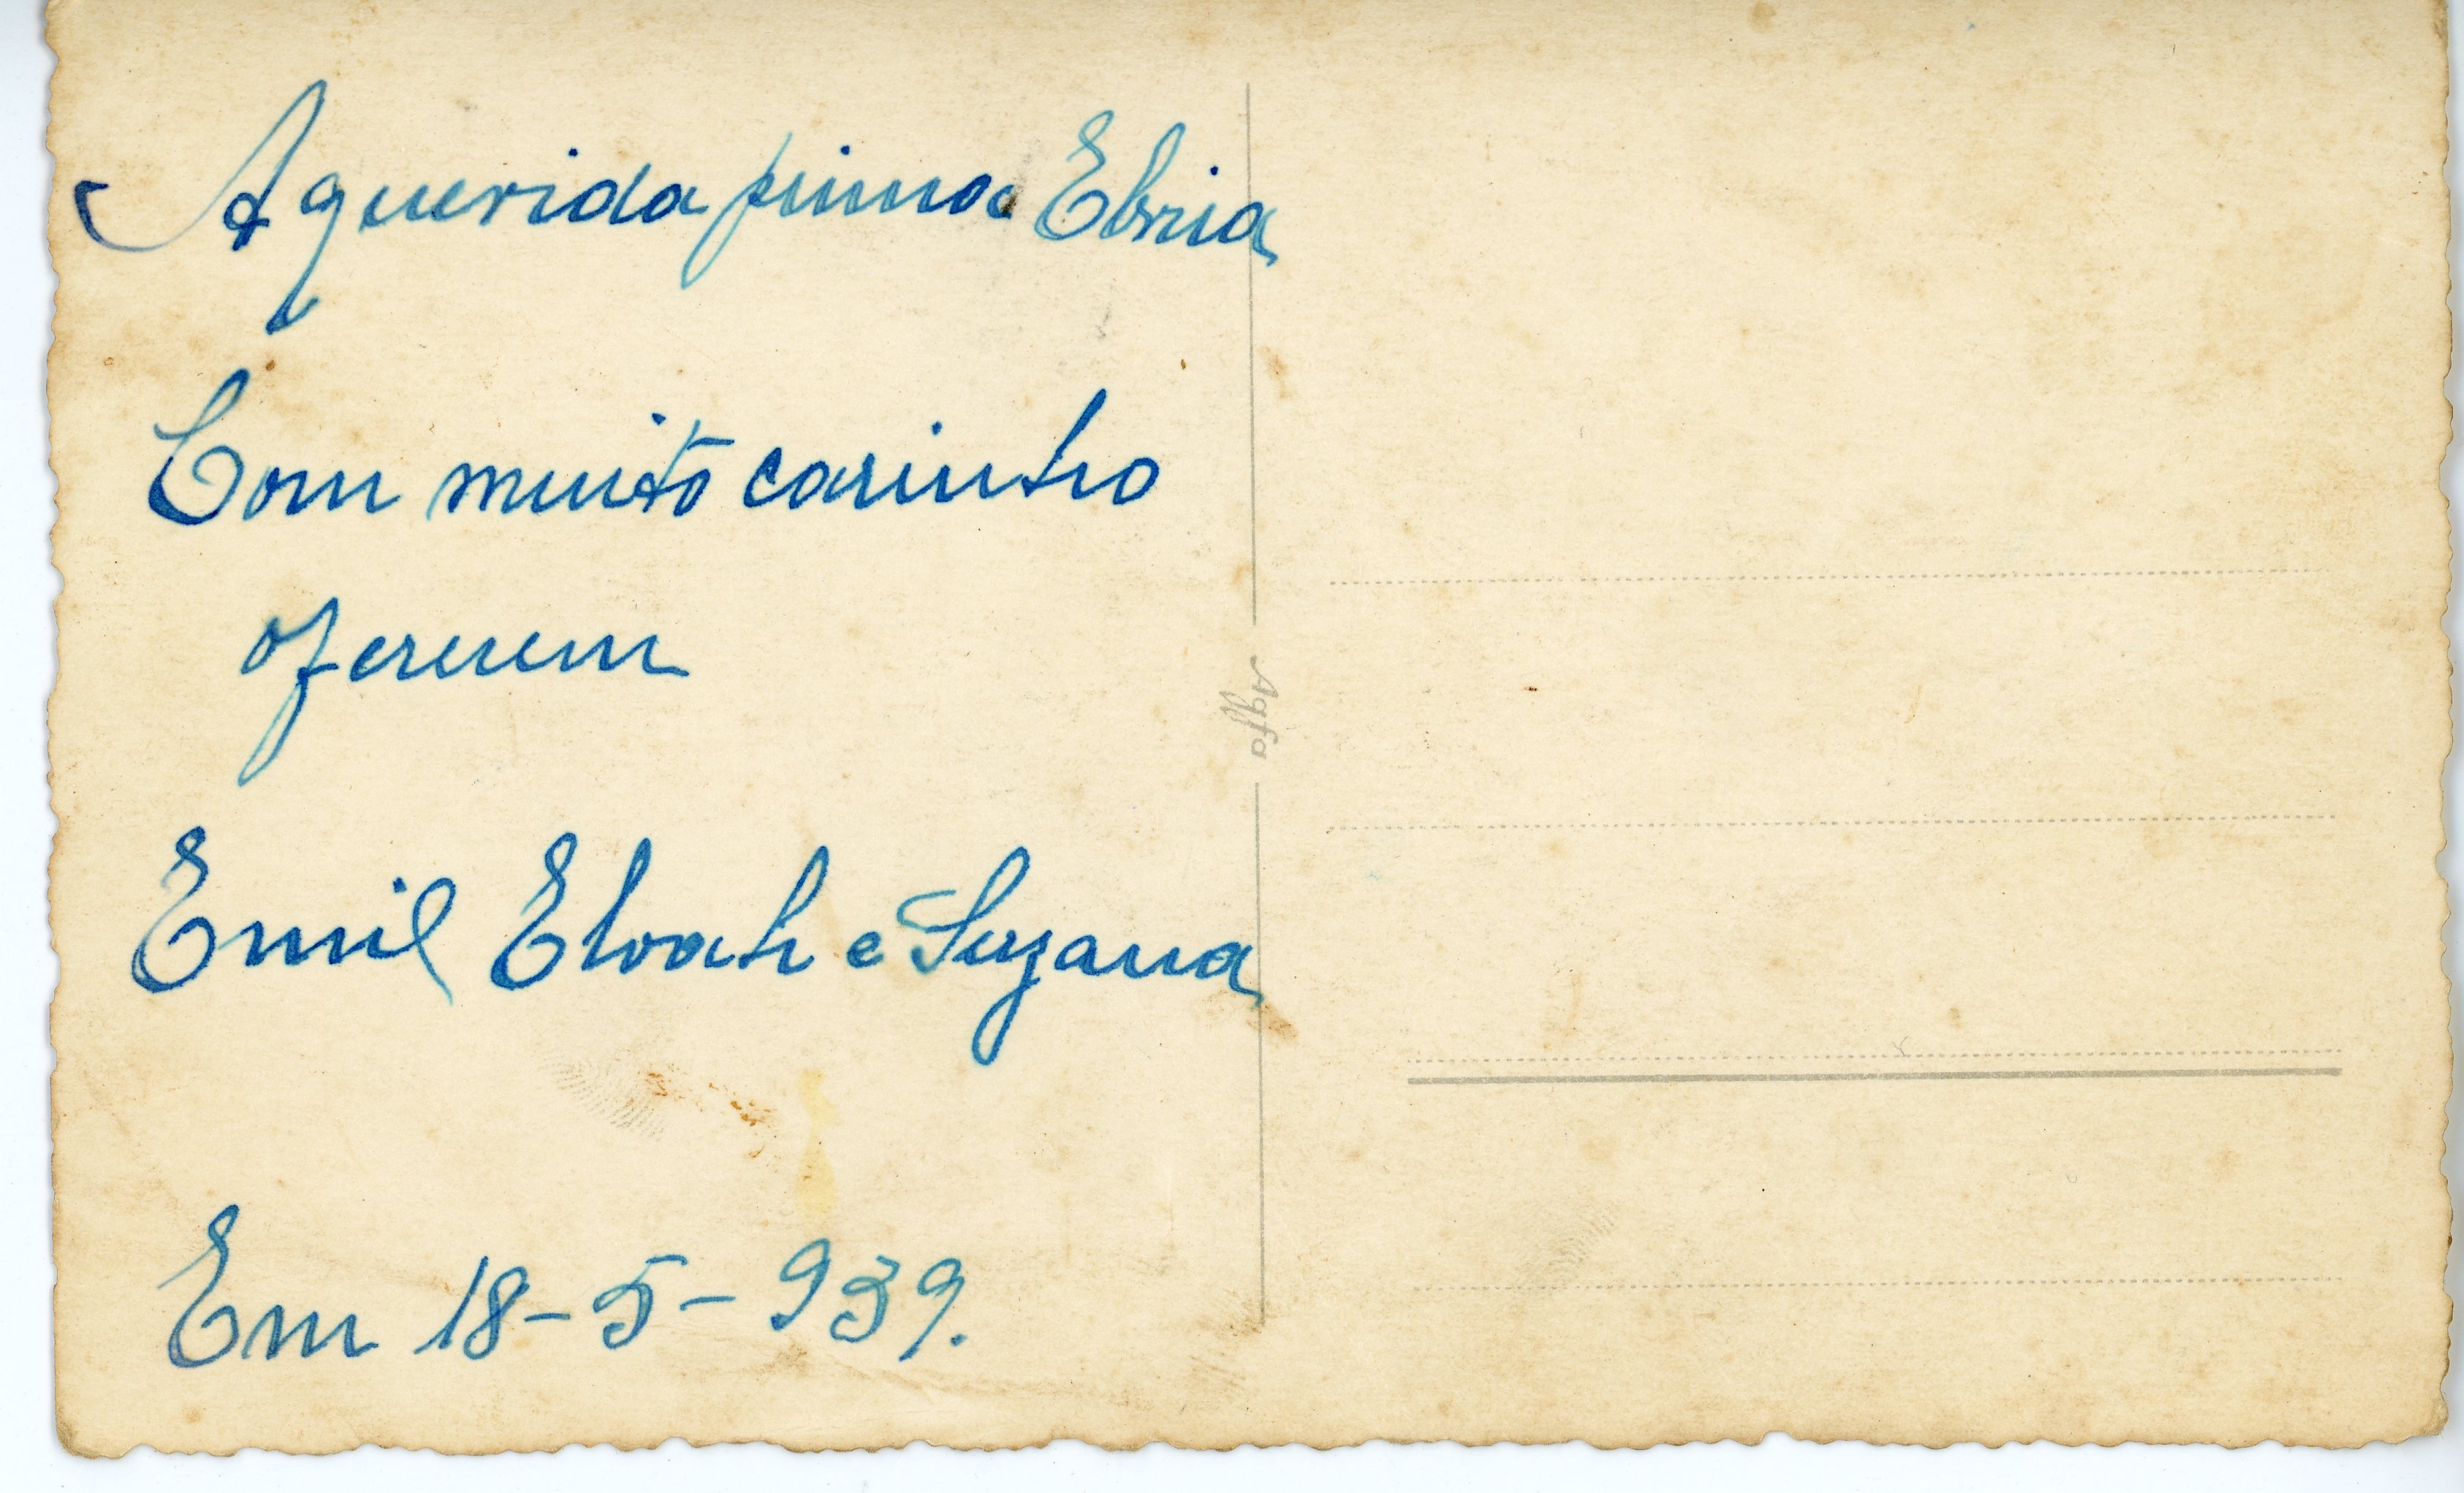 A querida prima Elzria
Com muito carinho
oferecem
Emil Eloah e Suzana
Em 18-5-939.
Agfa